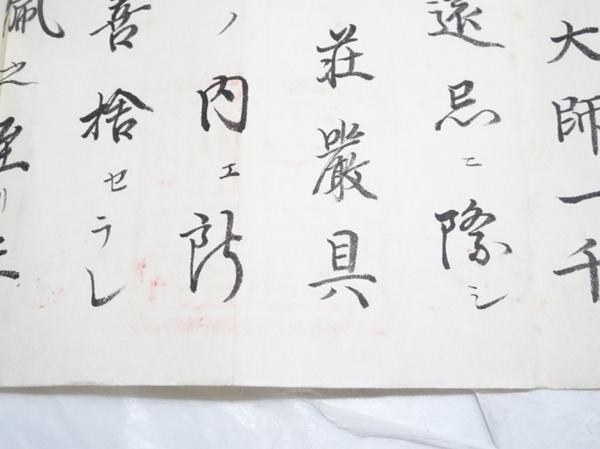 大師一千
遠忌ニ際シ
荘厳具
ノ内エ
喜捨セラレ
之至リニ